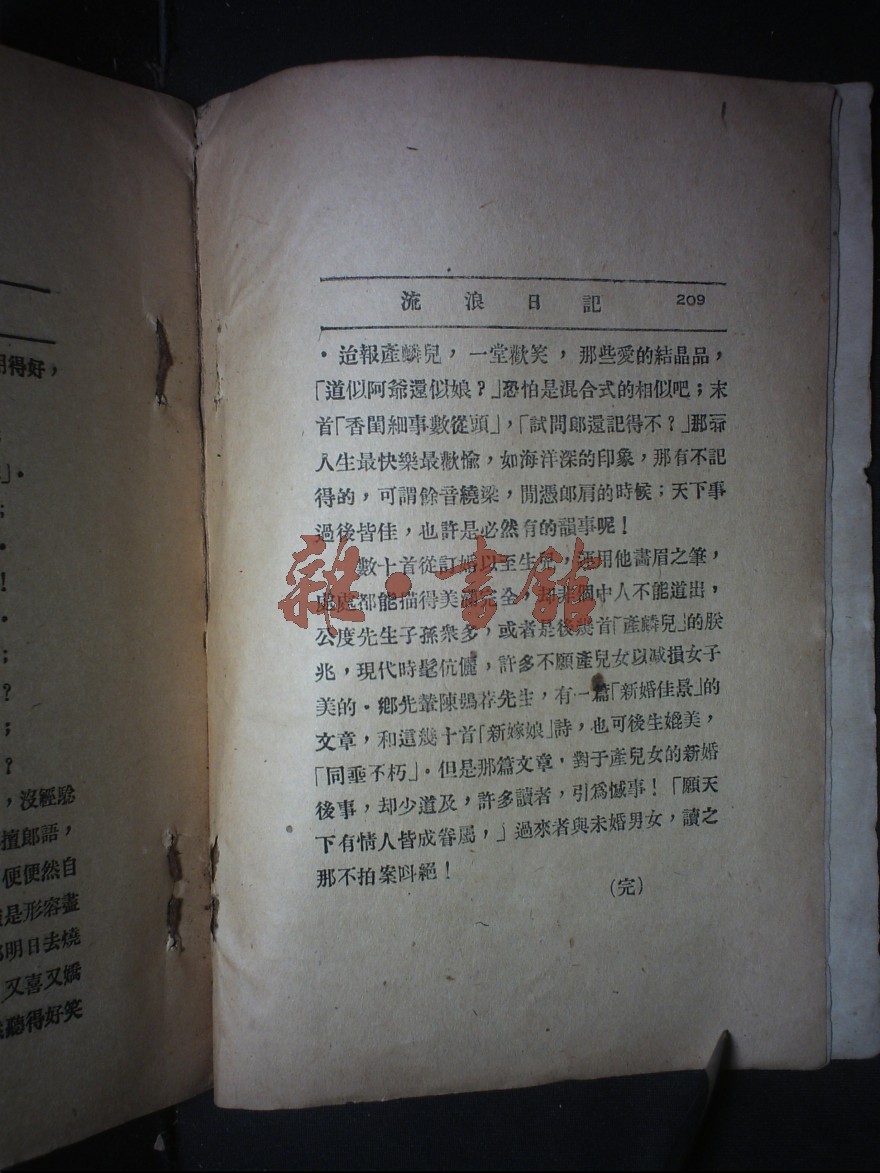 用得好，
，沒經驗
擅郎語，
便便然自
是形容盡
明日去燒
又喜又嬌
聽得好笑
流浪日記 209
。迨報產麟兒，一堂歡笑，那些愛的結晶品，
「道似阿爺還似娘？」恐怕是混合式的相似吧；末
首「香閨細事數從頭」，「試問郎還記得不？」那
人生最快樂最歡愉，如海洋深的印象，那有不記
得的，可謂餘音繞梁，閒憑郎肩的時候；天下事
過後皆佳，也許是必然有的韻事呢！
數十首從訂婚以至生，運用他畫眉之筆，
處處都能描得美滿完全，非個中人不能道出，
公度先生子孫衆多，或者是後幾首「產麟兒」的朕
兆，現代時髦伉儷，許多不願產兒女以减損女子
美的。鄉先輩陳鴂荐先生，有一篇「新婚佳景」的
文章，和這幾十首「新嫁娘」詩，也可後生媲美，
「同垂不朽」。但是那篇文章，對于產兒女的新婚
後事，却少道及，許多讀者，引爲憾事！「願天
下有情人皆成眷屬，」過來者與未婚男女，讀之
那不拍案叫絕！
（完）
雜·書館